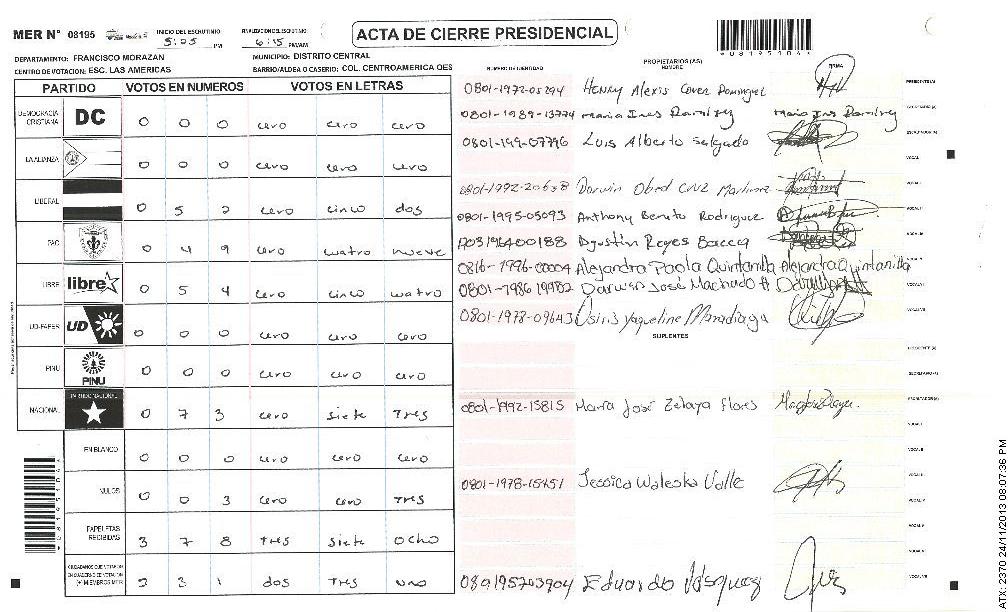 MER N° 08195
INICIO DEL ESCRUTINIO
5:25 PM
FINALIZACION DEL ESCRUTINIO
6:15 PM/AM
ACTA DE CIERRE PRESIDENCIAL
DEPARTAMENTO: FRANCISCO MORAZAN
MUNICIPIO: DISTRITO CENTRAL
CENTRO DE VOTACION: ESC. LAS AMERICAS
BARRIO/ALDEA O CASERIO: COL. CENTROAMERICA OES
PARTIDO VOTOS EN NUMEROS VOTOS EN LETRAS
DEMOCRACIA CRISTIANA DC 0 0 0 cero cero cero
LA ALIANZA 0 0 0 cero cero cero
LIBERAL 0 5 2 cero cinco dos
PAC 0 4 9 cero cuatro nueve
LIBRE libre 0 5 4 cero cinco cuatro
UD-FAPER UD 0 0 0 cero cero cero
PINU PINU 0 0 0 cero cero cero
NACIONAL PARTIDO NACIONAL 0 7 3 cero siete Tres
EN BLANCO 0 0 0 cero cero cero
NULOS 0 0 3 cero cero Tres
PAPELETAS RECIBIDAS 3 7 8 Tres siete ocho
CIUDADANOS QUE VOTARON EN CUADERNO DE VOTACION (+) MIEMBROS MER 2 3 1 dos Tres uno
NUMERO DE IDENTIDAD
PROPIETARIOS (AS)
NOMBRE
FIRMA
0801-1972-05294 Henry Alexis Cover Dominguez
PRESIDENTE(A)
0801-1989-13774 Maria Ines Ramirez Maria Ines Ramirez
0801-199-07796 Luis Alberto Salgado
ESCRUTADOR(A)
VOCAL
0801-1992-20638 Darwin Obed Cruz Martinez
0801-1995-05093 Anthony Benuto Rodriguez
0703196400188 Agustin Reyes Bacca
0816-1996-00004 Alejandra Paola Quintanilla Alejandra Quintanilla
0801-1986 19982 Darwin José Machado H
0801-1978-09643 Osiris Yaqueline Maradiaga
SUPLENTES
PRESIDENTE (A)
SECRETARIO (A)
0801-1992-15815 Maria José Zelaya Flores
ESCRUTADOR(A)
0801-1978-15151 Jessica Waleska Valle
0801195703904 Eduardo Vásquez
ATX 2370 24/11/2013 08:07:36 PM